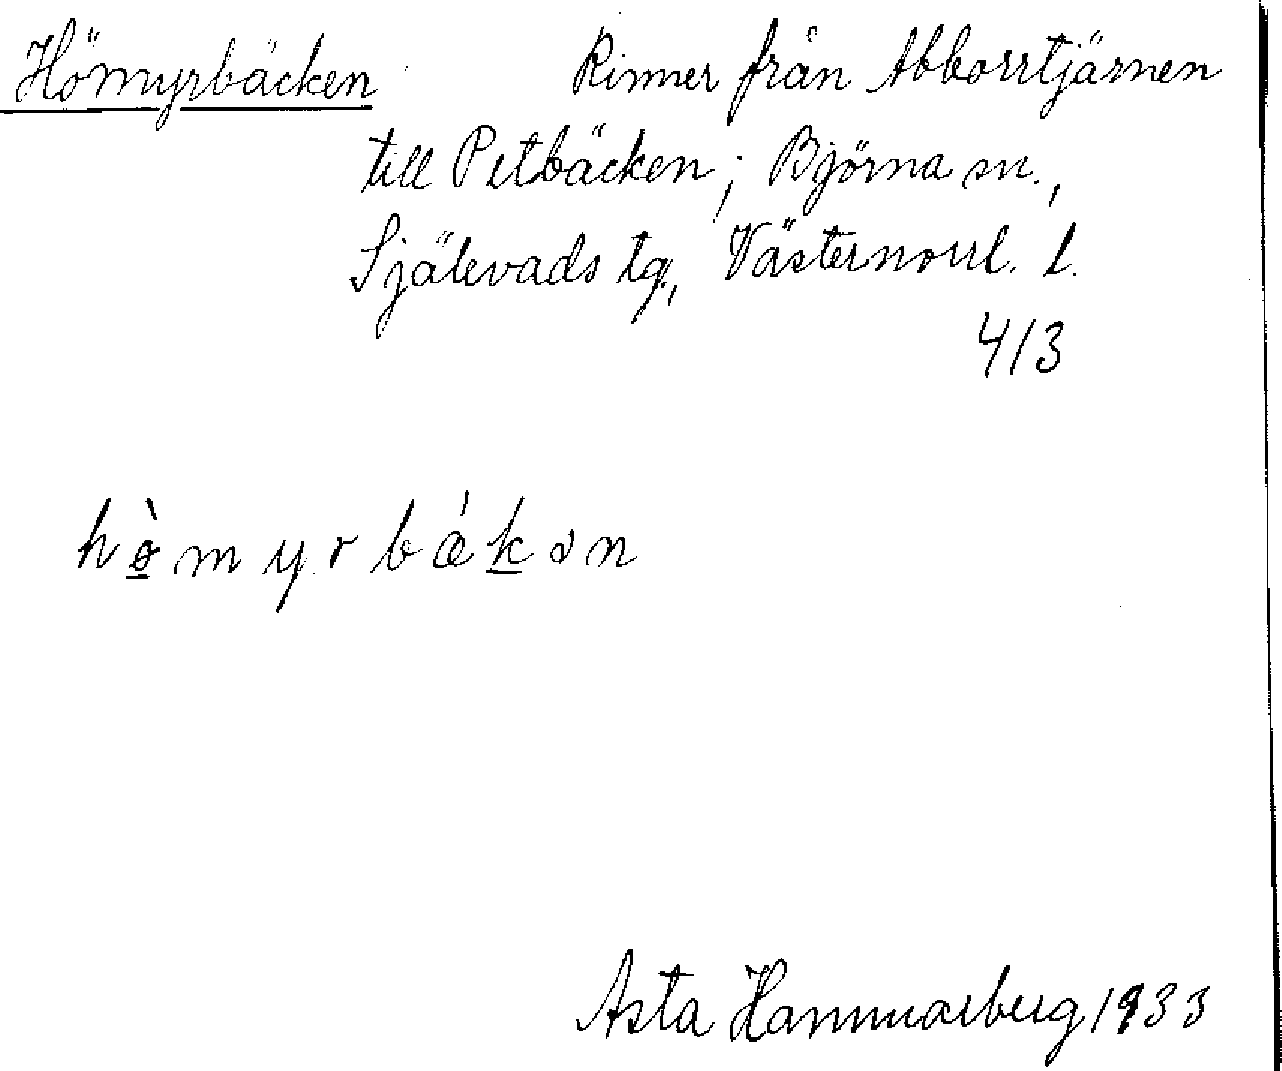 Hömyrbäcken Rinner från Abborrtjärnen
till Petbäcken; Björna sn.,
Själevads tg., Västernorrl. l.
413
hø̱̀myrbǽḵən
Asta Hammarberg 1933